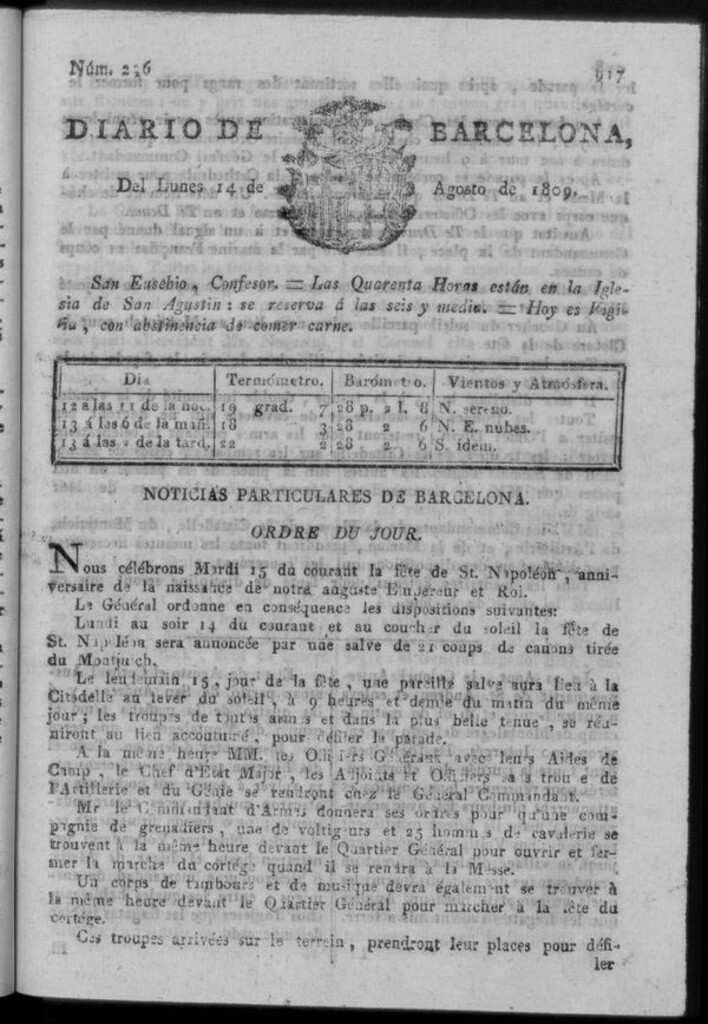 Núm. 226 917
DIARIO DE BARCELONA,
Del Lunes 14 de Agosto de 1809.
San Eusebio, Confesor. = Las Quarenta Horas están en la Igle-
sia de San Agustin: se reserva á las seis y media. = Hoy es Vigi-
lia, con abstinencia de comer carne.
Dia Termómetro. Barómetro. Vientos y Atmósfera.
12 a las 11 de la noc. 19 grad. 7 28 p. 2 l. 8 N. sereno.
13 á las 6 de la mañ. 18 3 28 2 6 N. E. nubes.
13 á las 2 de la tard. 22 2 28 2 6 S. idem.
NOTICIAS PARTICULARES DE BARCELONA.
ORDRE DU JOUR.
Nous célébrons Mardi 15 du courant la fête de St. Napoléon, anni-
versaire de la naissance de notra auguste Empereur et Roi.
Le Général ordonne en conséquence les dispositions suivantes:
Lundi au soir 14 du courant et au coucher du soleil la fête de
St. Napoléon sera annoncée par une salve de 21 coups de canons tirée
du Montjuich.
Le lendemain 15, jour de la fête, une pareille salve aura lieu à la
Citadelle au lever du soleil, à 9 heures et demie du matin du même
jour; les troupes de toutes armes et dans la plus belle tenue, se réu-
niront au lieu accoutumé, pour défiler la parade.
A la même heure MM. les Officiers Généraux avec leurs Aides de
Camp, le Chef d'Etat Major, les Adjoints et Officiers sans troupe de
l'Artillerie et du Génie se rendront chez le Général Commandant.
Mr. le Commandant d'Armes donnera ses ordres pour qu'une com-
pagnie de grenadiers, une de voltigeurs et 25 hommes de cavalerie se
trouvent à la même heure devant le Quartier Général pour ouvrir et fer-
mer la marche du cortége quand il se rendra à la Messe.
Un corps de tambours et de musique devra également se trouver à
la même heure devant le Quartier Général pour marcher à la tête du
cortége.
Ces troupes arrivées sur le terrein, prendront leur places pour défi-
ler